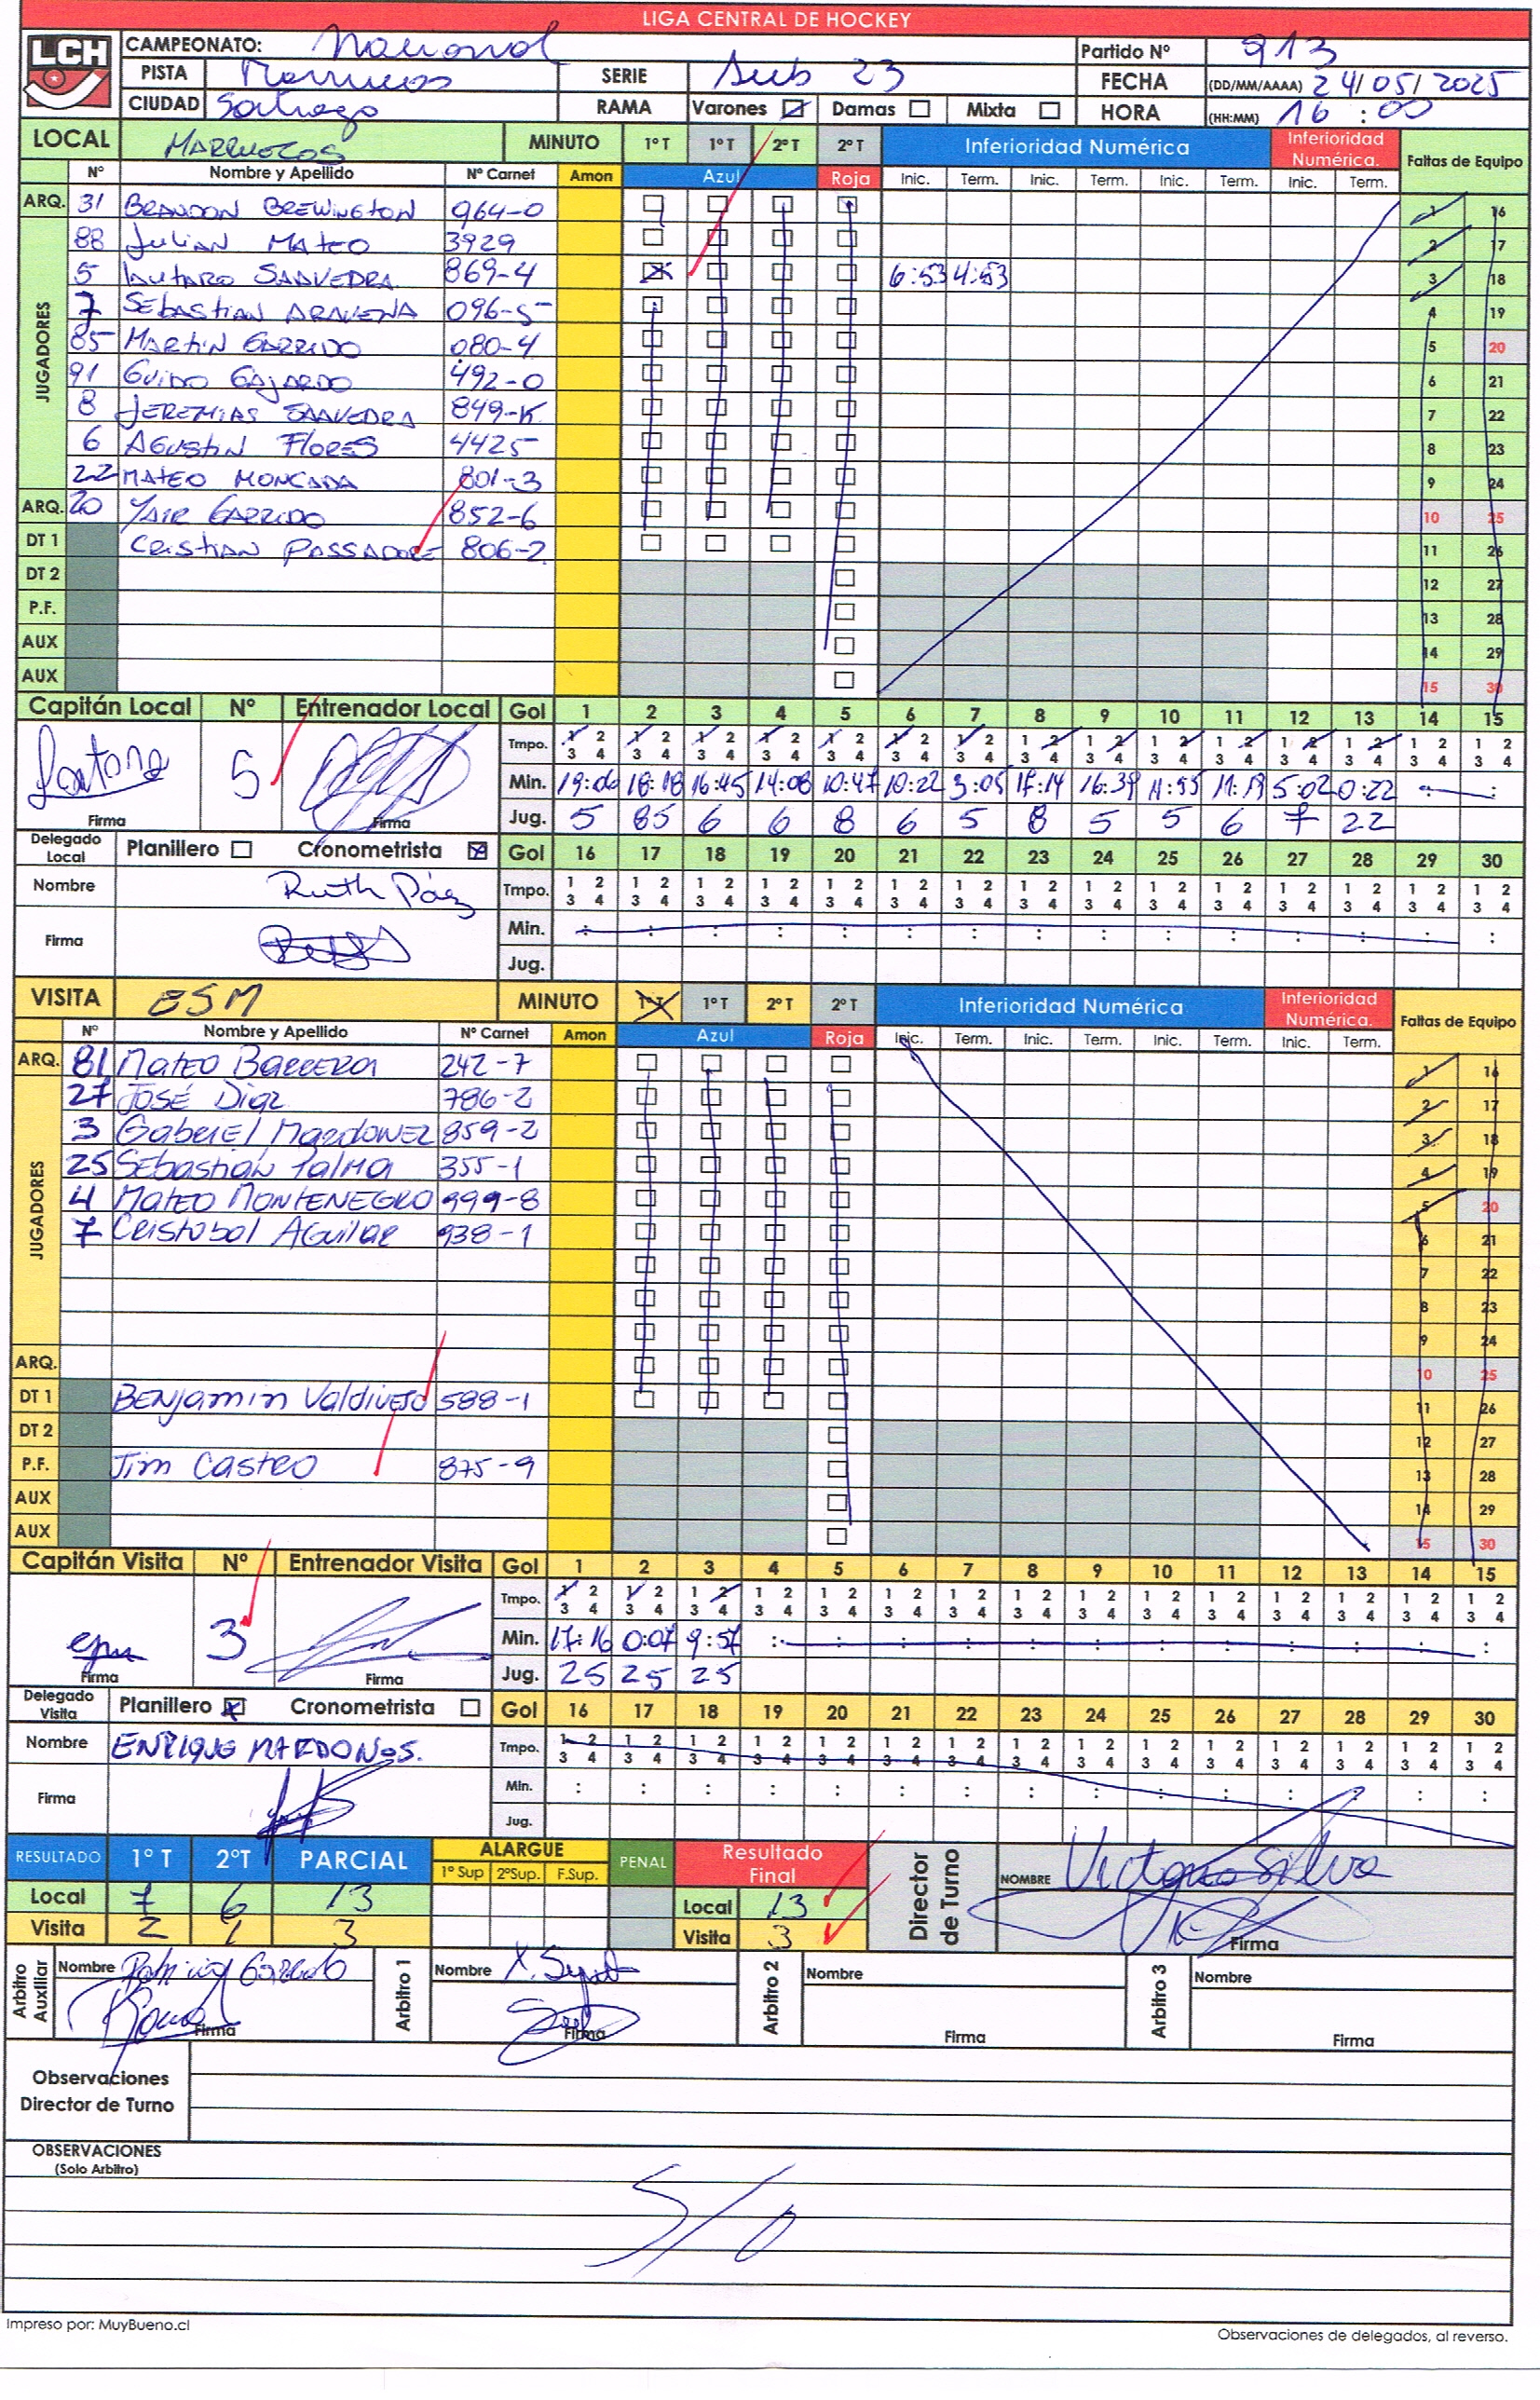 LIGA CENTRAL DE HOCKEY
LCH
CAMPEONATO: Nacional Partido Nº 913
PISTA Marruecos SERIE Sub 23 FECHA (DD/MM/AAAA) 24/05/2025
CIUDAD Santiago RAMA Varones Damas Mixta HORA (HH:MM) 16:00
LOCAL MARRUECOS MINUTO 1º T 1º T 2º T 2º T Inferioridad Numérica Inferioridad Numérica. Faltas de Equipo
Nº Nombre y Apellido Nº Carnet Amon Azul Roja Inic. Term. Inic. Term. Inic. Term. Inic. Term.
ARQ. 31 BRANDON BREWINGTON 964-0 1 16
JUGADORES
88 Julian MATEO 3929 2 17
5 LAUTARO SAAVEDRA 869-4 6:53 4:53 3 18
7 SEBASTIAN ARAVENA 096-5 4 19
85 MARTIN GARRIDO 080-4 5 20
91 GUIDO GAJARDO 492-0 6 21
8 JEREMIAS SAAVEDRA 849-K 7 22
6 AGUSTIN FLORES 4425 8 23
22 MATEO MONCADA 801-3 9 24
ARQ. 20 YAIR GARRIDO 852-6 10 25
DT 1 CRISTIAN PASSADORE 806-2 11 26
DT 2 12 27
P.F. 13 28
AUX 14 29
AUX 15 30
Capitán Local Nº Entrenador Local Gol 1 2 3 4 5 6 7 8 9 10 11 12 13 14 15
Tmpo. 1 2 1 2 1 2 1 2 1 2 1 2 1 2 1 2 1 2 1 2 1 2 1 2 1 2 1 2 1 2
3 4 3 4 3 4 3 4 3 4 3 4 3 4 3 4 3 4 3 4 3 4 3 4 3 4 3 4 3 4
5 Min. 19:06 18:18 16:45 14:08 10:47 10:22 3:05 17:14 16:39 11:55 11:19 5:02 0:22 : :
Firma Firma Jug. 5 85 6 6 8 6 5 8 5 5 6 7 22
Delegado Local Planillero Cronometrista Gol 16 17 18 19 20 21 22 23 24 25 26 27 28 29 30
Nombre Ruth Páez Tmpo. 1 2 1 2 1 2 1 2 1 2 1 2 1 2 1 2 1 2 1 2 1 2 1 2 1 2 1 2 1 2
3 4 3 4 3 4 3 4 3 4 3 4 3 4 3 4 3 4 3 4 3 4 3 4 3 4 3 4 3 4
Firma Min. : : : : : : : : : : : : : : :
Jug.
VISITA ESM MINUTO 1º T 1º T 2º T 2º T Inferioridad Numérica Inferioridad Numérica. Faltas de Equipo
Nº Nombre y Apellido Nº Carnet Amon Azul Roja Inic. Term. Inic. Term. Inic. Term. Inic. Term.
ARQ. 81 MATEO BARRERA 242-7 1 16
JUGADORES
27 JOSÉ Diaz 786-2 2 17
3 GabriEl MardonEz 859-2 3 18
25 Sebastián Palma 355-1 4 19
4 MATEO MONTENEGRO 999-8 5 20
7 Cristobal Aguilar 938-1 6 21
7 22
8 23
9 24
ARQ. 10 25
DT 1 BENjamin Valdivieso 588-1 11 26
DT 2 12 27
P.F. Jim Castro 875-9 13 28
AUX 14 29
AUX 15 30
Capitán Visita Nº Entrenador Visita Gol 1 2 3 4 5 6 7 8 9 10 11 12 13 14 15
Tmpo. 1 2 1 2 1 2 1 2 1 2 1 2 1 2 1 2 1 2 1 2 1 2 1 2 1 2 1 2 1 2
3 4 3 4 3 4 3 4 3 4 3 4 3 4 3 4 3 4 3 4 3 4 3 4 3 4 3 4 3 4
3 Min. 17:16 0:07 9:57 : : : : : : : : : : : :
Firma Firma Jug. 25 25 25
Delegado Visita Planillero Cronometrista Gol 16 17 18 19 20 21 22 23 24 25 26 27 28 29 30
Nombre ENRIQUE MARDONES. Tmpo. 1 2 1 2 1 2 1 2 1 2 1 2 1 2 1 2 1 2 1 2 1 2 1 2 1 2 1 2 1 2
3 4 3 4 3 4 3 4 3 4 3 4 3 4 3 4 3 4 3 4 3 4 3 4 3 4 3 4 3 4
Firma Min. : : : : : : : : : : : : : : :
Jug.
RESULTADO 1º T 2ºT PARCIAL ALARGUE 1º Sup 2ºSup. F.Sup. PENAL Resultado Final Director de Turno NOMBRE Victoria Silva
Local 7 6 13 Local 13
Visita 2 1 3 Visita 3 Firma
Arbitro Auxiliar Nombre Patricio Garrido Arbitro 1 Nombre X. Arbitro 2 Nombre Arbitro 3 Nombre
Firma Firma Firma Firma
Observaciones
Director de Turno
OBSERVACIONES
(Solo Arbitro)
S/O
Impreso por: MuyBueno.cl
Observaciones de delegados, al reverso.